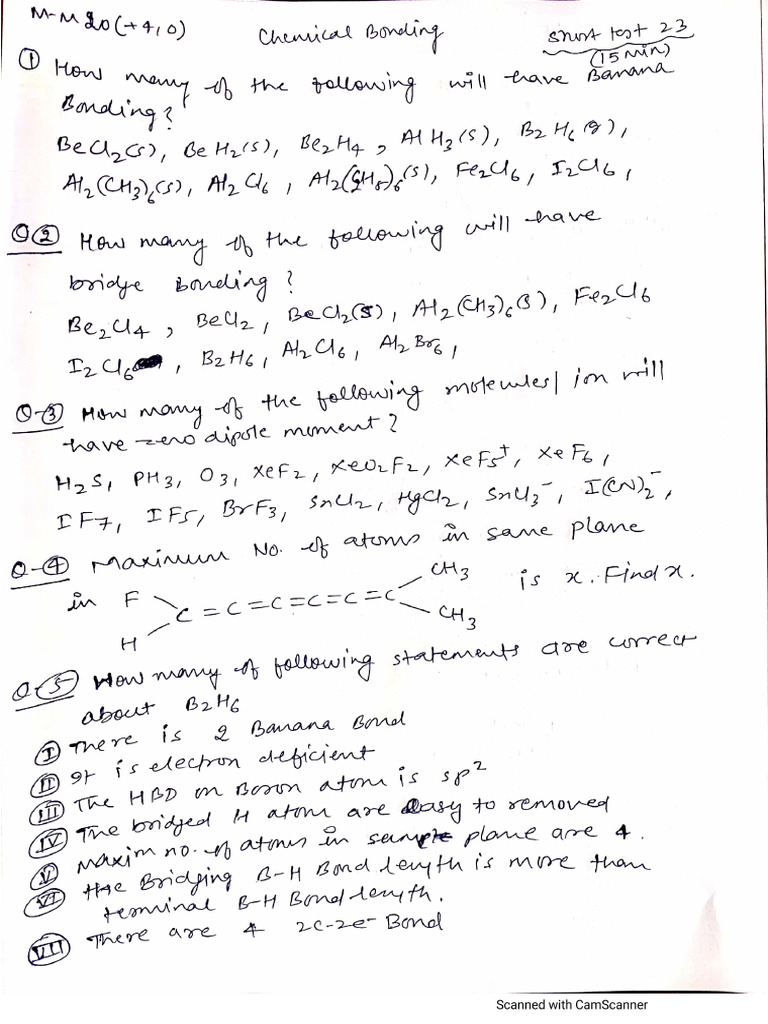 M-M 20 (+4,0) Chemical Bonding Short test 23
(15 Min)
① How many of the following will have Banana
Bonding?
BeCl₂(s), BeH₂(s), Be₂H₄, AlH₃(s), B₂H₆(g),
Al₂(CH₃)₆(s), Al₂Cl₆, Al₂(C₂H₅)₆(s), Fe₂Cl₆, I₂Cl₆,
Q② How many of the following will have
bridge Bonding?
Be₂Cl₄, BeCl₂, BeCl₂(s), Al₂(CH₃)₆(s), Fe₂Cl₆
I₂Cl₆, B₂H₆, Al₂Cl₆, Al₂Br₆,
Q-③ How many of the following molecules/ion will
have zero dipole moment?
H₂S, PH₃, O₃, XeF₂, XeO₂F₂, XeF₅⁺, XeF₆,
IF₇, IF₅, BrF₃, SnCl₂, HgCl₂, SnCl₃⁻, I(CN)₂⁻,
Q-④ Maximum No. of atoms in same plane
in F H C=C=C=C=C=C CH₃ CH₃ is x. Find x.
Q-⑤ How many of following statements are correct
about B₂H₆
Ⓘ There is 2 Banana Bond
(II) It is electron deficient
(III) The HBD on Boron atom is sp²
(IV) The bridged H atom are easy to removed
(V) Maxim no. of atoms in same plane are 4.
(VI) The Bridging B-H Bond length is more than
terminal B-H Bond length.
(VII) There are 4 2c-2e⁻ Bond
Scanned with CamScanner